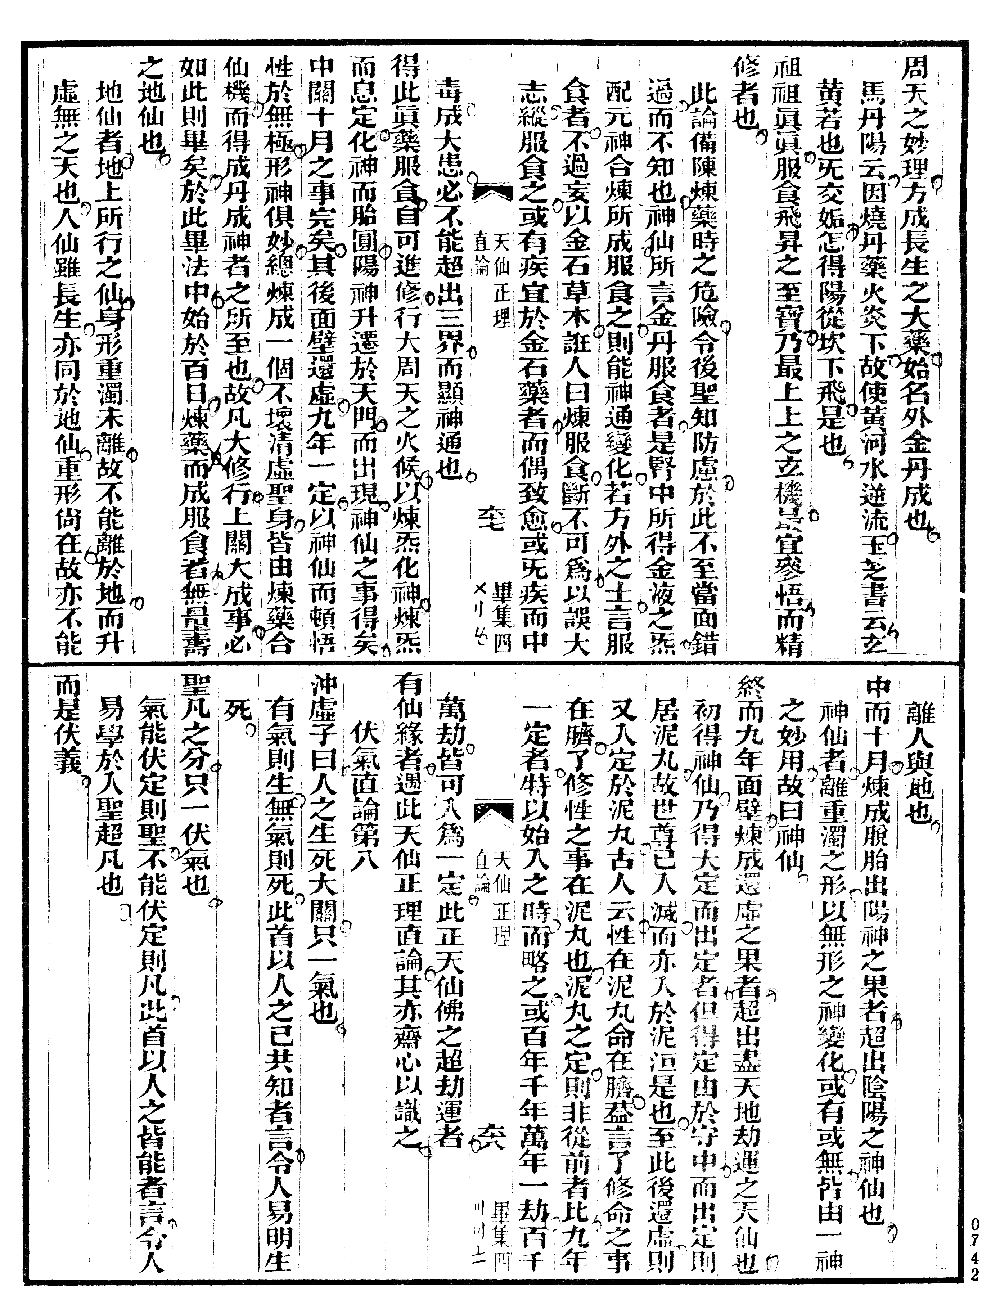 周天之妙理方成長生之大藥始名外金丹成也
馬丹陽云因燒丹藥火炎下故使黃河水逆流玉芝書云玄
黃若也旡交姤怎得陽從坎下飛是也
祖祖眞眞服食飛昇之至寶乃最上上之玄機最宜參悟而精
修者也
此論備陳煉藥時之危險令後聖知防慮於此不至當面錯
過而不知也神仙所言金丹服食者是腎中所得金液之炁
配元神合煉所成服食之則能神通變化若方外之士言服
食者不過妄以金石草木誑人曰煉服食斷不可爲以誤大
志縱服食之或有疾宜於金石藥者而偶致愈或旡疾而中
天仙正理
直論
畢集四
毒成大患必不能超出三界而顯神通也
得此眞藥服食自可進修行大周天之火候以煉炁化神煉炁
而息定化神而胎圓陽神升遷於天門而出現神仙之事得矣
中關十月之事完矣其後面壁還虛九年一定以神仙而頓悟
性於無極形神俱妙總煉成一個不壞清虛聖身皆由煉藥合
仙機而得成丹成神者之所至也故凡大修行上關大成事必
如此則畢矣於此畢法中始於百日煉藥而成服食者無量壽
之地仙也
地仙者地上所行之仙身形重濁未離故不能離於地而升
虛無之天也人仙雖長生亦同於地仙重形尙在故亦不能
離人與地也
中而十月煉成脫胎出陽神之果者超出陰陽之神仙也
神仙者離重濁之形以無形之神變化或有或無皆由一神
之妙用故曰神仙
終而九年面壁煉成還虛之果者超出盡天地劫運之天仙也
初得神仙乃得大定而出定者但得定由於守中而出定則
居泥丸故世尊已入滅而亦入於泥洹是也至此後還虛則
又入定於泥丸古人云性在泥丸命在臍葢言了修命之事
在臍了修性之事在泥丸也泥丸之定則非從前者比九年
一定者特以始入之時而略之或百年千年萬年一劫百千
天仙正理
直論
畢集四
萬劫皆可入爲一定此正天仙佛之超劫運者
有仙緣者遇此天仙正理直論其亦齋心以識之
伏氣直論第八
沖虛子曰人之生死大關只一氣也
有氣則生無氣則死此首以人之已共知者言令人易明生
死
聖凡之分只一伏氣也
氣能伏定則聖不能伏定則凡此首以人之皆能者言令人
易學於入聖超凡也
而是伏義
0742